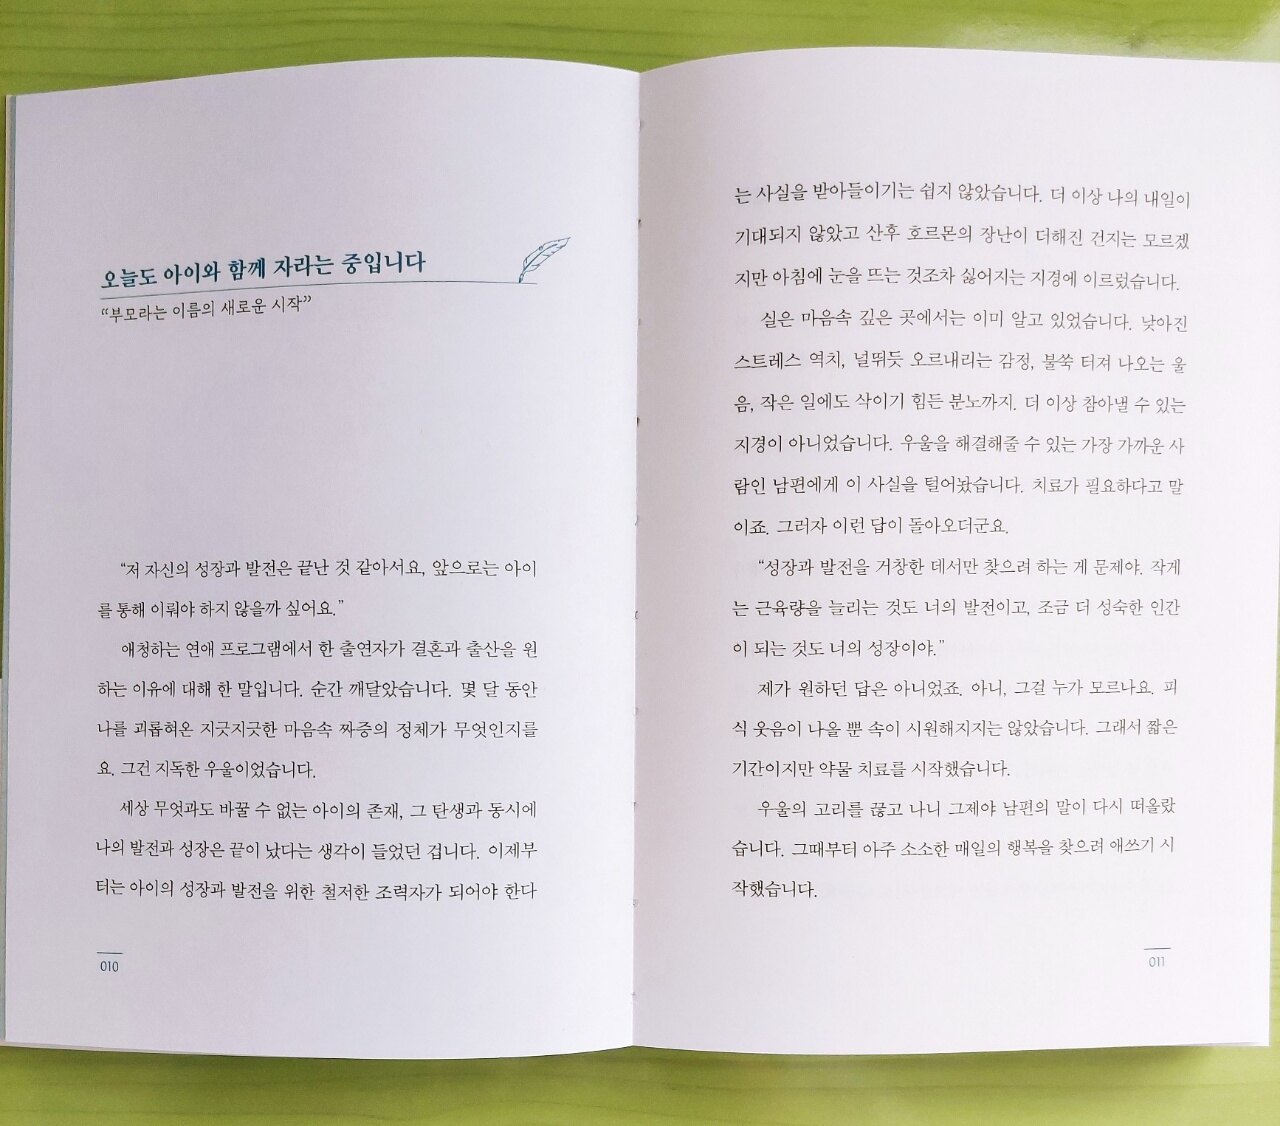 오늘도 아이와 함께 자라는 중입니다
“부모라는 이름의 새로운 시작”
“저 자신의 성장과 발전은 끝난 것 같아서요, 앞으로는 아이
를 통해 이뤄야 하지 않을까 싶어요.”
애청하는 연애 프로그램에서 한 출연자가 결혼과 출산을 원
하는 이유에 대해 한 말입니다. 순간 깨달았습니다. 몇 달 동안
나를 괴롭혀온 지긋지긋한 마음속 짜증의 정체가 무엇인지를
요. 그건 지독한 우울이었습니다.
세상 무엇과도 바꿀 수 없는 아이의 존재, 그 탄생과 동시에
나의 발전과 성장은 끝이 났다는 생각이 들었던 겁니다. 이제부
터는 아이의 성장과 발전을 위한 철저한 조력자가 되어야 한다
010
는 사실을 받아들이기는 쉽지 않았습니다. 더 이상 나의 내일이
기대되지 않았고 산후 호르몬의 장난이 더해진 건지는 모르겠
지만 아침에 눈을 뜨는 것조차 싫어지는 지경에 이르렀습니다.
실은 마음속 깊은 곳에서는 이미 알고 있었습니다. 낮아진
스트레스 역치, 널뛰듯 오르내리는 감정, 불쑥 터져 나오는 울
음, 작은 일에도 삭이기 힘든 분노까지. 더 이상 참아낼 수 있는
지경이 아니었습니다. 우울을 해결해줄 수 있는 가장 가까운 사
람인 남편에게 이 사실을 털어놨습니다. 치료가 필요하다고 말
이죠. 그러자 이런 답이 돌아오더군요.
“성장과 발전을 거창한 데서만 찾으려 하는 게 문제야. 작게
는 근육량을 늘리는 것도 너의 발전이고, 조금 더 성숙한 인간
이 되는 것도 너의 성장이야.”
제가 원하던 답은 아니었죠. 아니, 그걸 누가 모르나요. 피
식 웃음이 나올 뿐 속이 시원해지지는 않았습니다. 그래서 짧은
기간이지만 약물 치료를 시작했습니다.
우울의 고리를 끊고 나니 그제야 남편의 말이 다시 떠올랐
습니다. 그때부터 아주 소소한 매일의 행복을 찾으려 애쓰기 시
작했습니다.
011